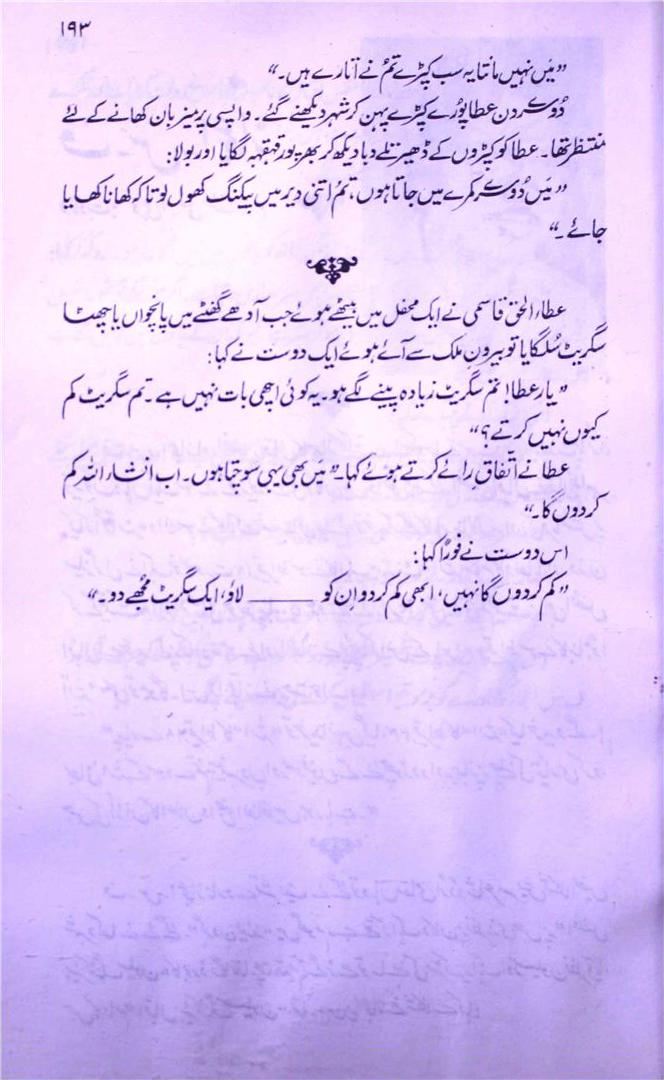 ۱۹۳
”مَیں نہیں مانتا یہ سب کپڑے تم نے اتارے ہیں۔“
دُوسرے دن عطا پورے کپڑے پہن کر شہر دیکھنے گئے۔ واپسی پر میزبان کھانے کے لئے
منتظر تھا۔ عطا کو کپڑوں کے ڈھیر تلے دبا دیکھ کر بھرپور قہقہہ لگایا اور بولا:
”مَیں دُوسرے کمرے میں جاتا ہوں، تم اتنی دیر میں پیکنگ کھول لو تاکہ کھانا کھایا
جائے۔“
عطاء الحق قاسمی نے ایک محفل میں بیٹھے ہوئے جب آدھے گھنٹے میں پانچواں یا چھٹا
سگریٹ سُلگایا تو بیرونِ ملک سے آئے ہوئے ایک دوست نے کہا:
”یار عطا! تم سگریٹ زیادہ پینے لگے ہو۔ یہ کوئی اچھی بات نہیں ہے۔ تم سگریٹ کم
کیوں نہیں کرتے؟“
عطا نے اتفاق رائے کرتے ہوئے کہا۔ ”مَیں بھی یہی سوچتا ہوں۔ اب انشاء اللہ کم
کردوں گا۔“
اس دوست نے فوراً کہا:
”کم کردوں گا نہیں، ابھی کم کردو ان کو ______ لاؤ، ایک سگریٹ مجھے دو۔“